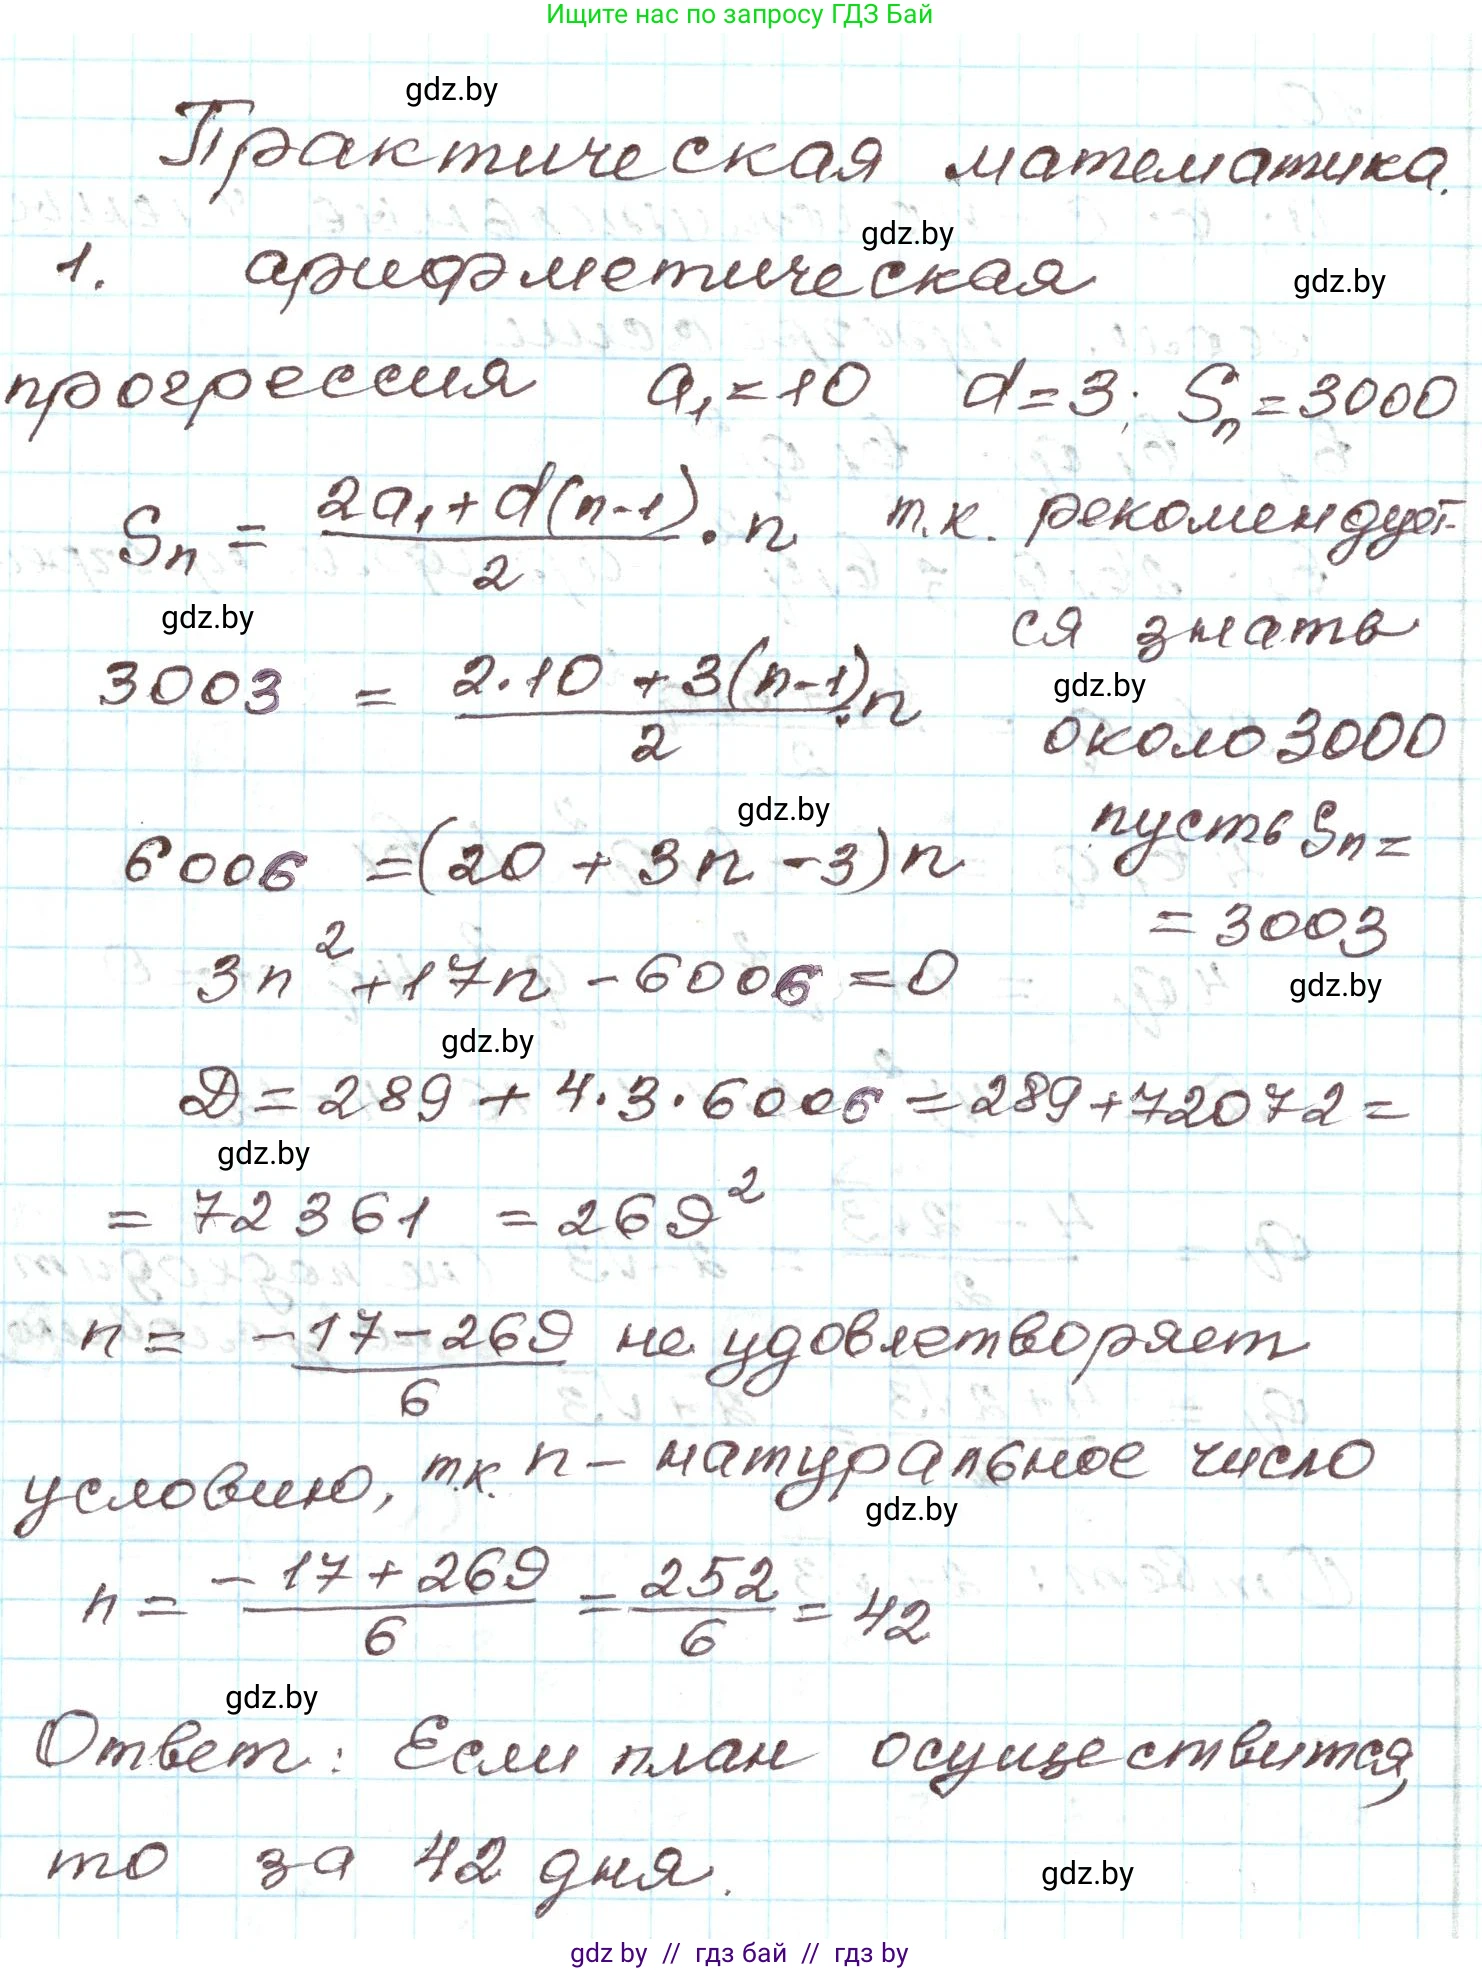 Ищите нас по запросу ГДЗ Бай
gdz.by
Практическая математика.
gdz.by
1. арифметическая
gdz.by
прогрессия a₁=10 d=3; Sₙ=3000
Sₙ = (2a₁+d(n-1))/2 · n т.к. рекомендует-
gdz.by
ся знать
3003 = (2·10+3(n-1))/2 · n
gdz.by
около 3000
gdz.by
6006 =(20+3n-3)n пусть Sₙ=
= 3003
3n²+17n-6006=0
gdz.by
gdz.by
D=289+4·3·6006=289+72072=
gdz.by
= 72361 = 269²
n= (-17-269)/6 не удовлетворяет
условию, т.к. n - натуральное число
gdz.by
n= (-17+269)/6 = 252/6 = 42
gdz.by
Ответ: Если план осуществится,
то за 42 дня.
gdz.by
gdz by // гдз бай // gdz by